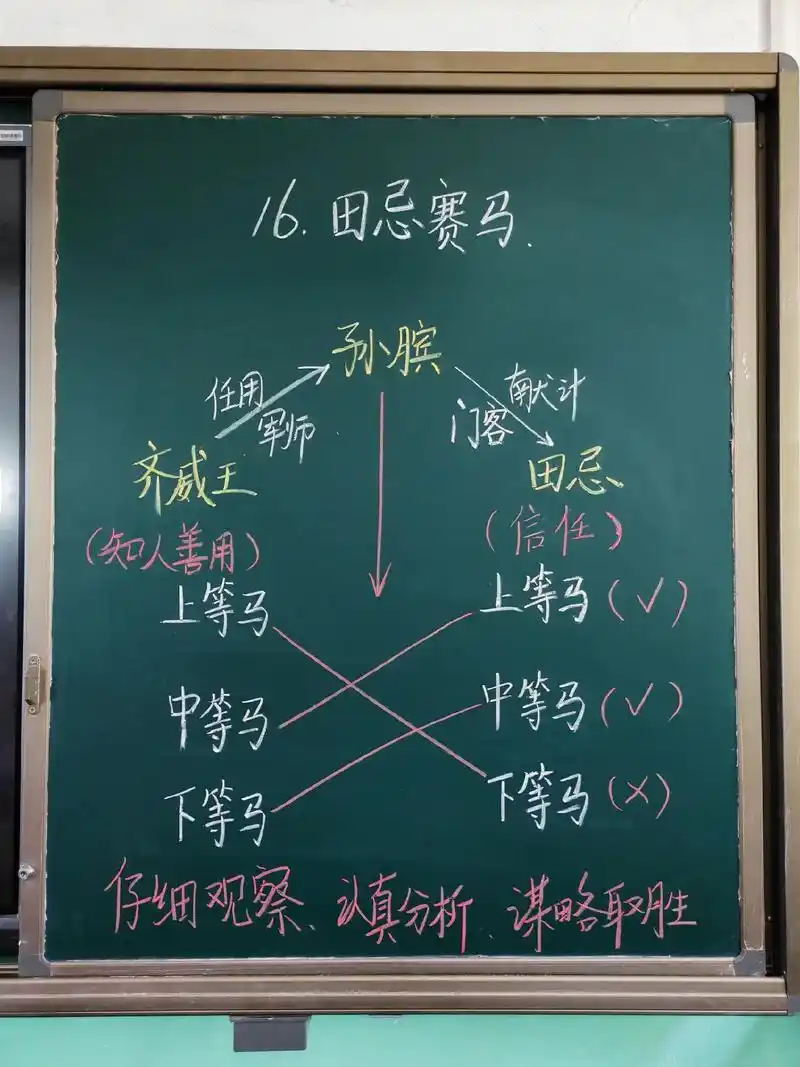 16. 田忌赛马.
孙膑
任用
军师.
献计
门客
齐威王
田忌
(知人善用)
(信任)
上等马
上等马 (√)
中等马
中等马 (√)
下等马
下等马 (×)
仔细观察、认真分析、谋略取胜